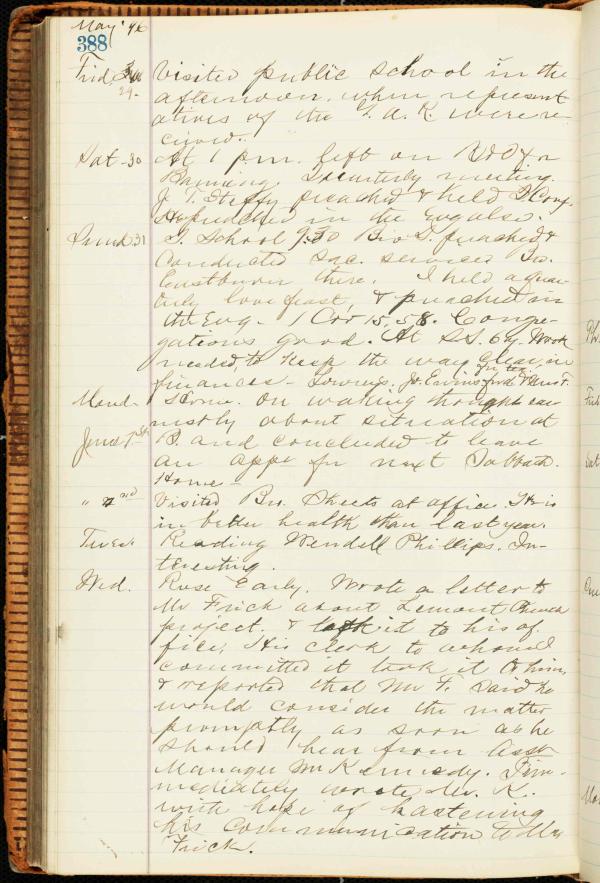 May '96
388
Frid. 29. Visited public school in the
afternoon, when represent
atives of the G. A. R. were re
ceived.
Sat. 30 At 1 p.m. left on for
Banning. Quarterly meeting.
J. T. Steffy preached & held Q. Conf.
He preached in the evg also.
Sund. 31 S. School 9.30 Bro S. preached &
conducted Sac. services
there. I held a quar
terly love feast, & preached in
the Evg. 1 Cor 15, 58. Congre-
gations good. At S.S. 64. Work
needed, to keep the way clear, in
finances -
Mond. Home. On waking thought ear
nestly about situation at
June 1st B. and concluded to leave
an appt for next Sabbath.
Home -
" 2nd Visited Bro. Sheets at office. He is
in better health than last year.
Tues. Reading Wendell Phillips. In-
teresting.
Wed. Rose Early. Wrote a letter to
Mr Frick about Lemont Church
project, & took it to his of
fice. His clerk to whom I
committed it took it to him,
& reported that Mr F. said he
would consider the matter
promptly as soon as he
should hear from Asst
Manager Mr Kennedy. Im-
mediately wrote Mr. K.
with hope of hastening
his communication to Mr
Frick.